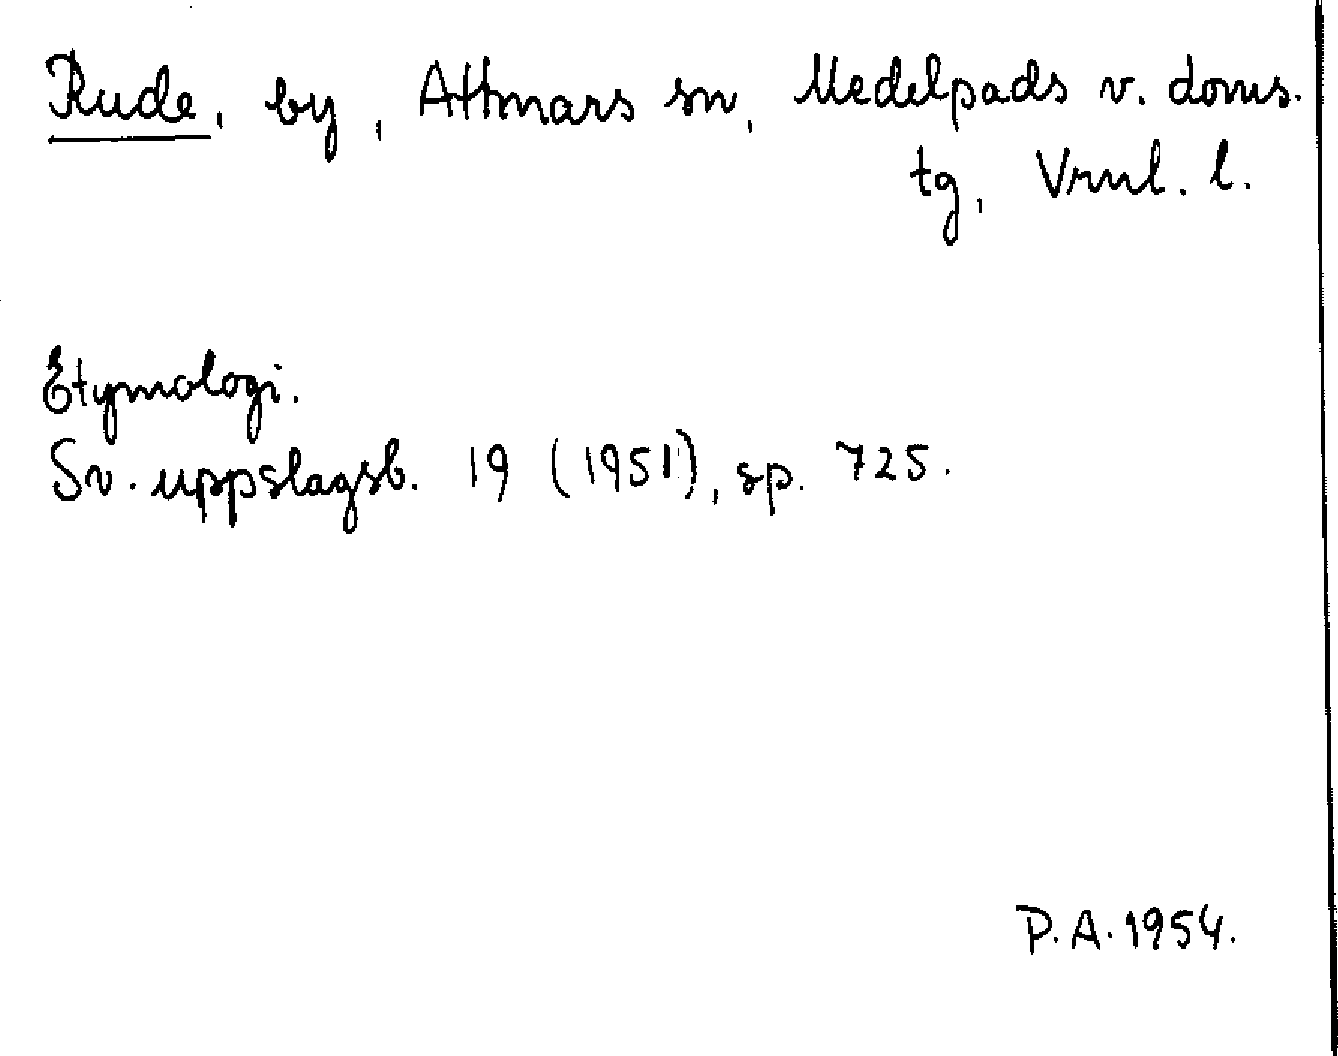 Rude, by, Attmars sn, Medelpads v. doms.
tg, Vrnl. l.
Etymologi.
Sv. uppslagsb. 19 (1951), sp. 725.
P.A. 1954.